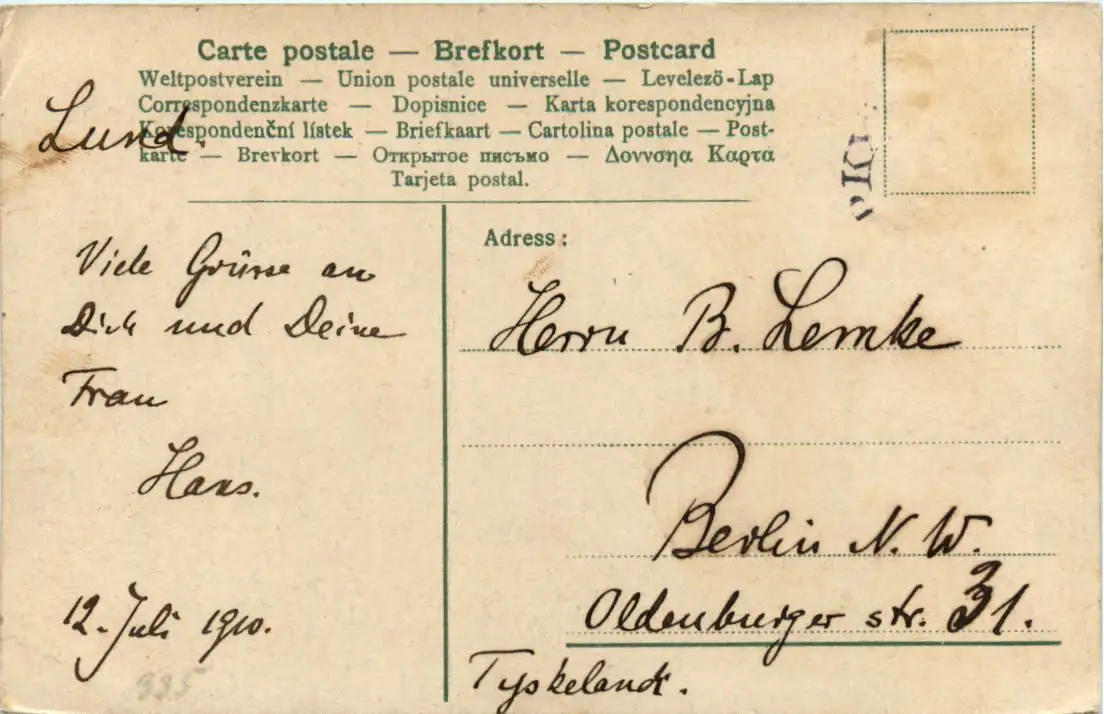 Carte postale — Brefkort — Postcard
Weltpostverein — Union postale universelle — Levelezö-Lap
Correspondenzkarte — Dopisnice — Karta korespondencyjna
Korespondenční lístek — Briefkaart — Cartolina postale — Post-
karte — Brevkort — Открытое письмо — Δοννσηα Καρτα
Tarjeta postal.
Lund.
Viele Grüsse an
Dich und Deine
Frau
Hans.
12. Juli 1910.
935
Adress:
Herrn B. Lemke
Berlin N. W.
Oldenburger str. 31.
Tyskeland.